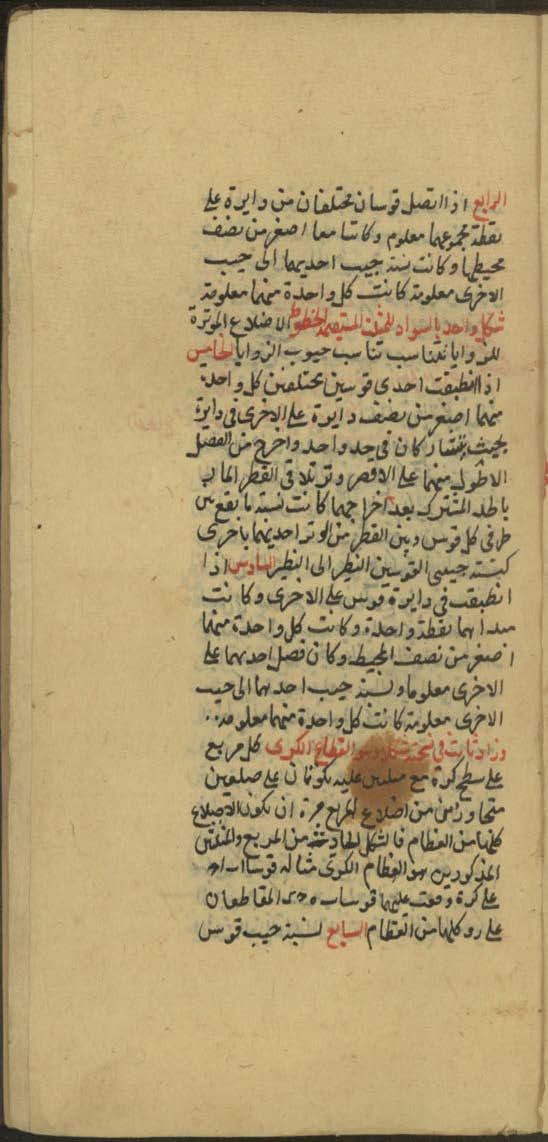 الرابع اذا اتصل قوسان مختلفان من دايرة على
نقطة مجموعهما معلوم وكانتا معا اصغر من نصف
محيطها وكانت نسبة جيب احديهما الى جيب
الاخرى معلومة كانت كل واحدة منهما معلومة
شكل واحد بالسواد للمثلث المستقيمة الخطوط الاضلاع الموترة
للزوايا تتناسب تناسب جيوب الزوايا الخامس
اذا انطبقت احدى قوسين مختلفتين كل واحدة
منهما اصغر من نصف دايرة على الاخرى في دايرة
بحيث كان في حد واحد واخرج من الفصل
الاطول منهما على الاقصر وتر تلاقى القطر المار
بالحد المشترك بعد اخراجهما كانت نسبة ما يقع من
طرفي كل قوس وبين القطر من الوتر احديهما باخرى
كنسبة جيبى القوسين النظير الى النظير السادس اذا
انطبقت في دايرة قوس على الاخرى وكانت
مبداهما نقطة واحدة وكانت كل واحدة منهما
اصغر من نصف المحيط وكان فصل احديهما على
الاخرى معلوما ونسبة جيب احديهما الى جيب
الاخرى معلومة كانت كل واحدة منهما معلومة
وزاد ثابت في نسخة شكل وهو القطاع الكرى كل مربع
على سطح كرة مع مثلثين عليه يكونان على ضلعين
متجاورين من اضلاع المربع مرة ان تكون الاضلاع
كلها من العظام فالشكل الحادث من المربع والمثلثين
المذكورين هو القطاع الكرى مثاله قوسا اب اه
على كرة وقعت عليهما قوسا ب ه المقاطعان
على ر وكلها من العظام السابع نسبة جيب قوس